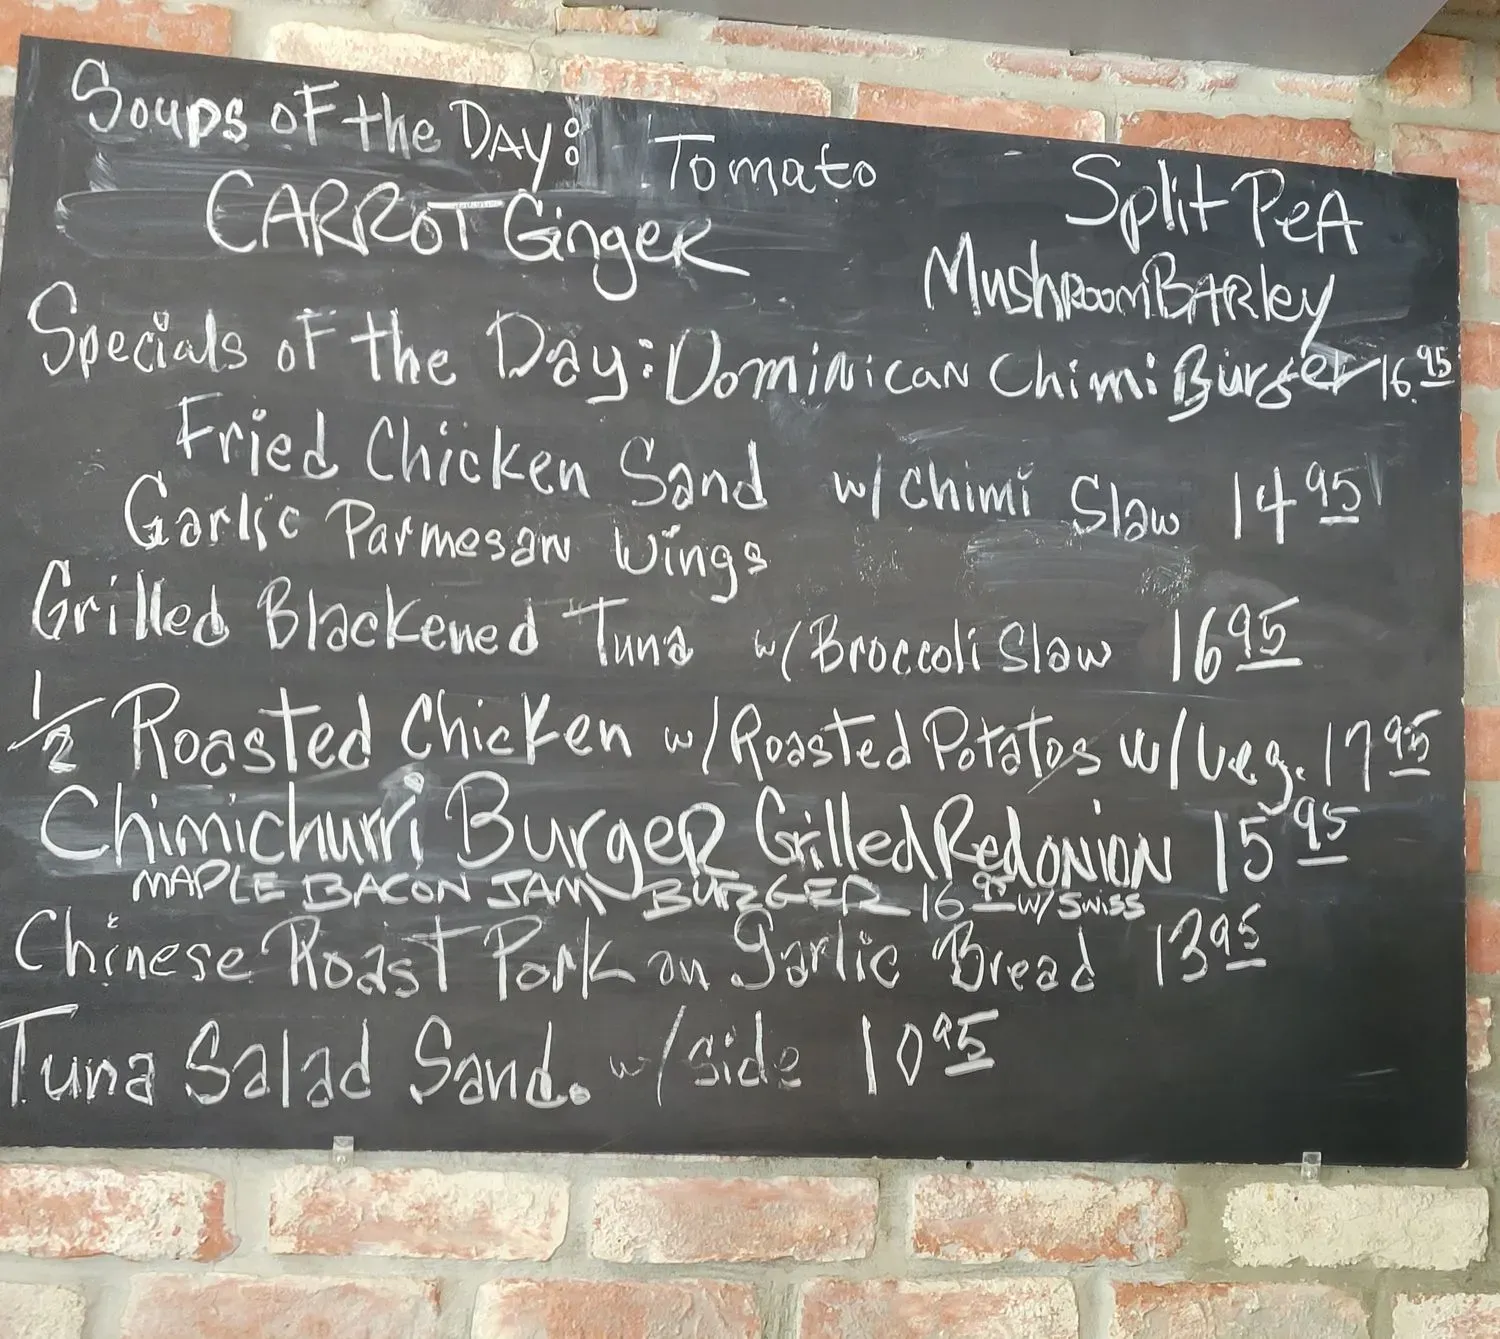 Soups of the Day: Tomato Split Pea
Carrot Ginger Mushroom Barley
Specials of the Day: Dominican Chimi Burger 16.95
Fried Chicken Sand w/ Chimi Slaw 14 95
Garlic Parmesan Wings
Grilled Blackened Tuna w/ Broccoli Slaw 16 95
1/2 Roasted Chicken w/ Roasted Potatos w/ Veg. 17 95
Chimichurri Burger Grilled Red Onion 15 95
MAPLE BACON JAM BURGER 16 95 w/ SWISS
Chinese Roast Pork on garlic Bread 13 95
Tuna Salad Sand. w/ side 10 95